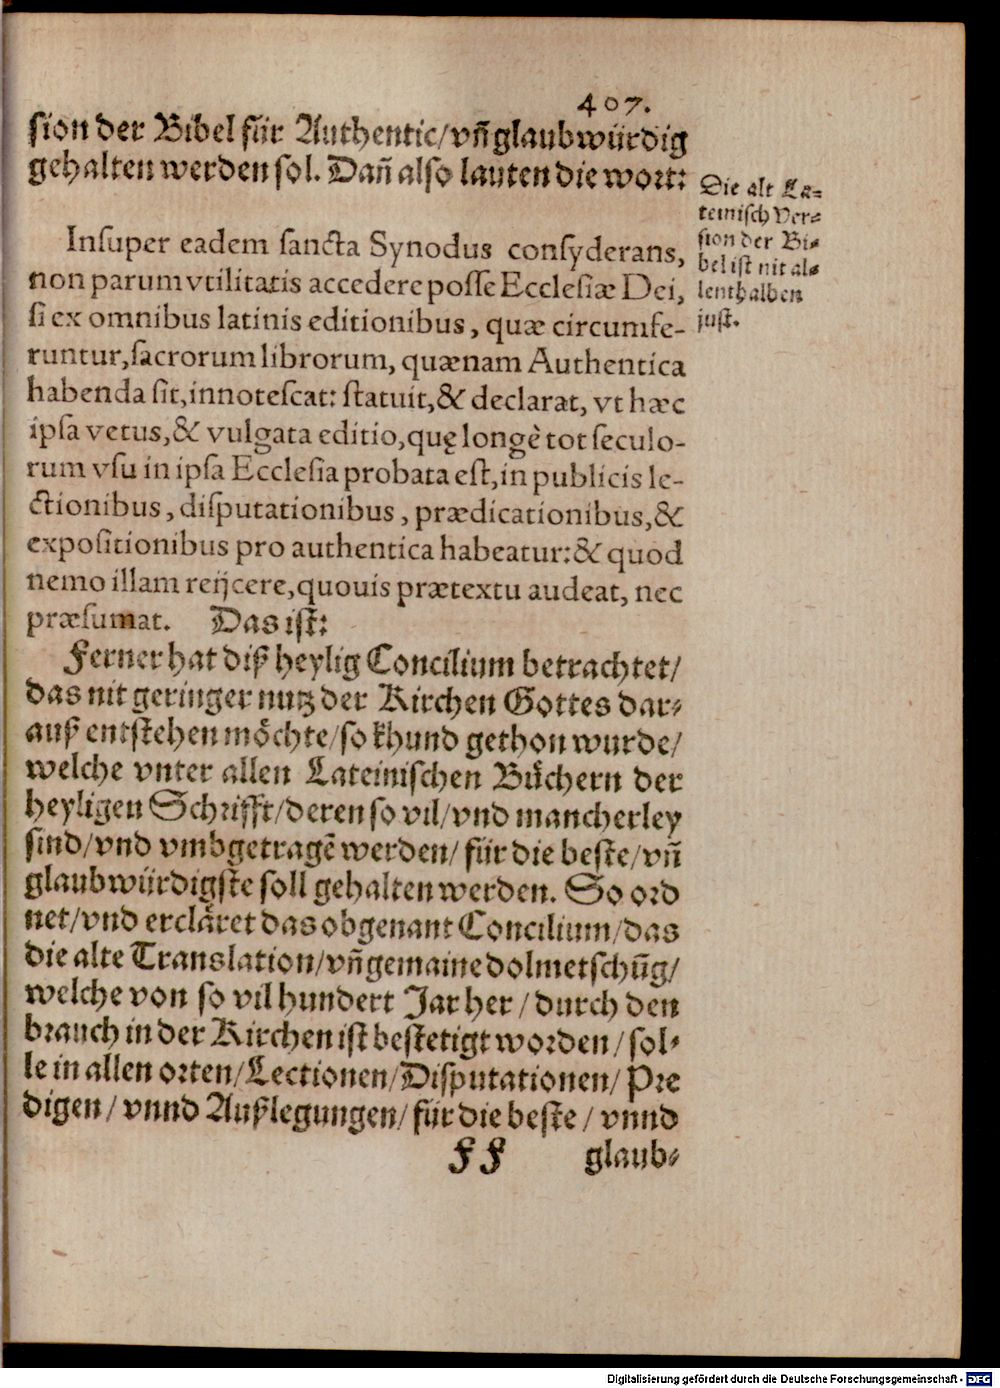 407.
sion der Bibel für Authentic/vñ glaubwürdig
gehalten werden sol. Dañ also lauten die wort:
Die alt La-
teinisch Ver-
sion der Bi-
bel ist nit al-
lenthalben
just.
Insuper eadem sancta Synodus consyderans,
non parum vtilitatis accedere posse Ecclesiæ Dei,
si ex omnibus latinis editionibus, quæ circumfe-
runtur, sacrorum librorum, quænam Authentica
habenda sit, innotescat: statuit, & declarat, vt hæc
ipsa vetus, & vulgata editio, quę longè tot seculo-
rum vsu in ipsa Ecclesia probata est, in publicis le-
ctionibus, disputationibus, prædicationibus, &
expositionibus pro authentica habeatur: & quod
nemo illam reijcere, quouis prætextu audeat, nec
præsumat. Das ist:
Ferner hat diß heylig Concilium betrachtet/
das nit geringer nutz der Kirchen Gottes dar-
auß entstehen möchte/so khund gethon wurde/
welche vnter allen Lateinischen Büchern der
heyligen Schrifft/deren so vil/vnd mancherley
sind/vnd vmbgetragē werden/ für die beste/vñ
glaubwürdigste soll gehalten werden. So ord
net/vnd ercläret das obgenant Concilium/das
die alte Translation/vñ gemaine dolmetschūg/
welche von so vil hundert Jar her / durch den
brauch in der Kirchen ist bestetigt worden / sol-
le in allen orten/Lectionen/Disputationen/ Pre
digen / vnnd Außlegungen/ für die beste / vnnd
FF glaub-
Digitalisierung gefördert durch die Deutsche Forschungsgemeinschaft - DFG